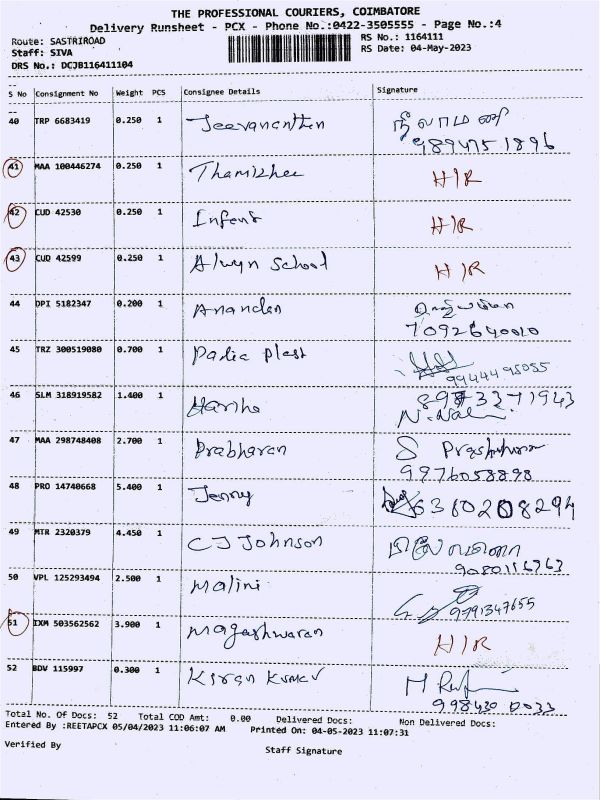 THE PROFESSIONAL COURIERS, COIMBATORE
Delivery Runsheet - PCX - Phone No.:0422-3505555 - Page No.:4
Route: SASTRIROAD RS No.: 1164111
Staff: SIVA RS Date: 04-May-2023
DRS No.: DCJB116411104
S No Consignment No Weight PCS Consignee Details Signature
40 TRP 6683419 0.250 1 Jeevananthan
9894751896
41 MAA 100446274 0.250 1 Thamizhee H/R
42 CUD 42530 0.250 1 H/R
43 CUD 42599 0.250 1 Alwyn School H/R
44 DPI 5182347 0.200 1 Anandan
7092640020
45 TRZ 300519080 0.700 1 Plast
9944495055
46 SLM 318919582 1.400 1 Harsha
47 MAA 298748408 2.700 1 Prabharan S
9976058898
48 PRO 14740668 5.400 1 Jenny 6380208294
49 MTR 2320379 4.450 1 CJ Johnson
9080116763
50 VPL 125293494 2.500 1 Malini
9791347655
51 IXM 503562562 3.900 1 Magashwaran H/R
52 BDV 115997 0.300 1 Kiran Kumar
Total No. Of Docs: 52 Total COD Amt: 0.00 Delivered Docs: Non Delivered Docs:
Entered By :REETAPCX 05/04/2023 11:06:07 AM Printed On: 04-05-2023 11:07:31
Verified By Staff Signature